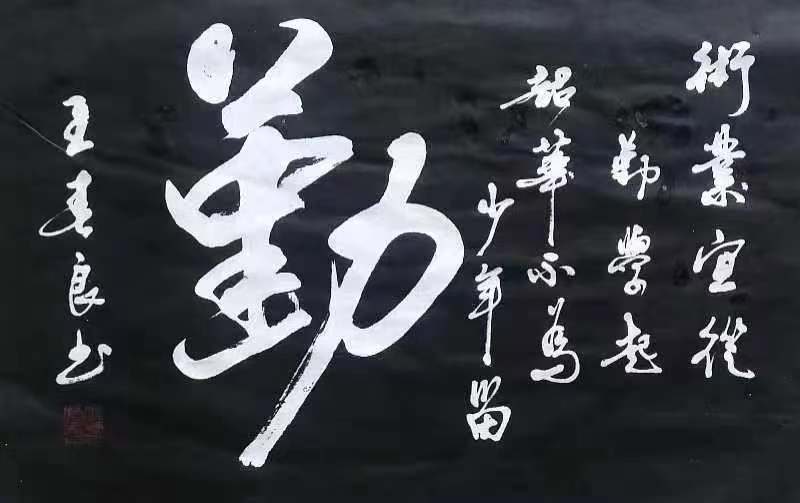 術業宜從
勤學起
韶華不為
少年留
勤
王春良书